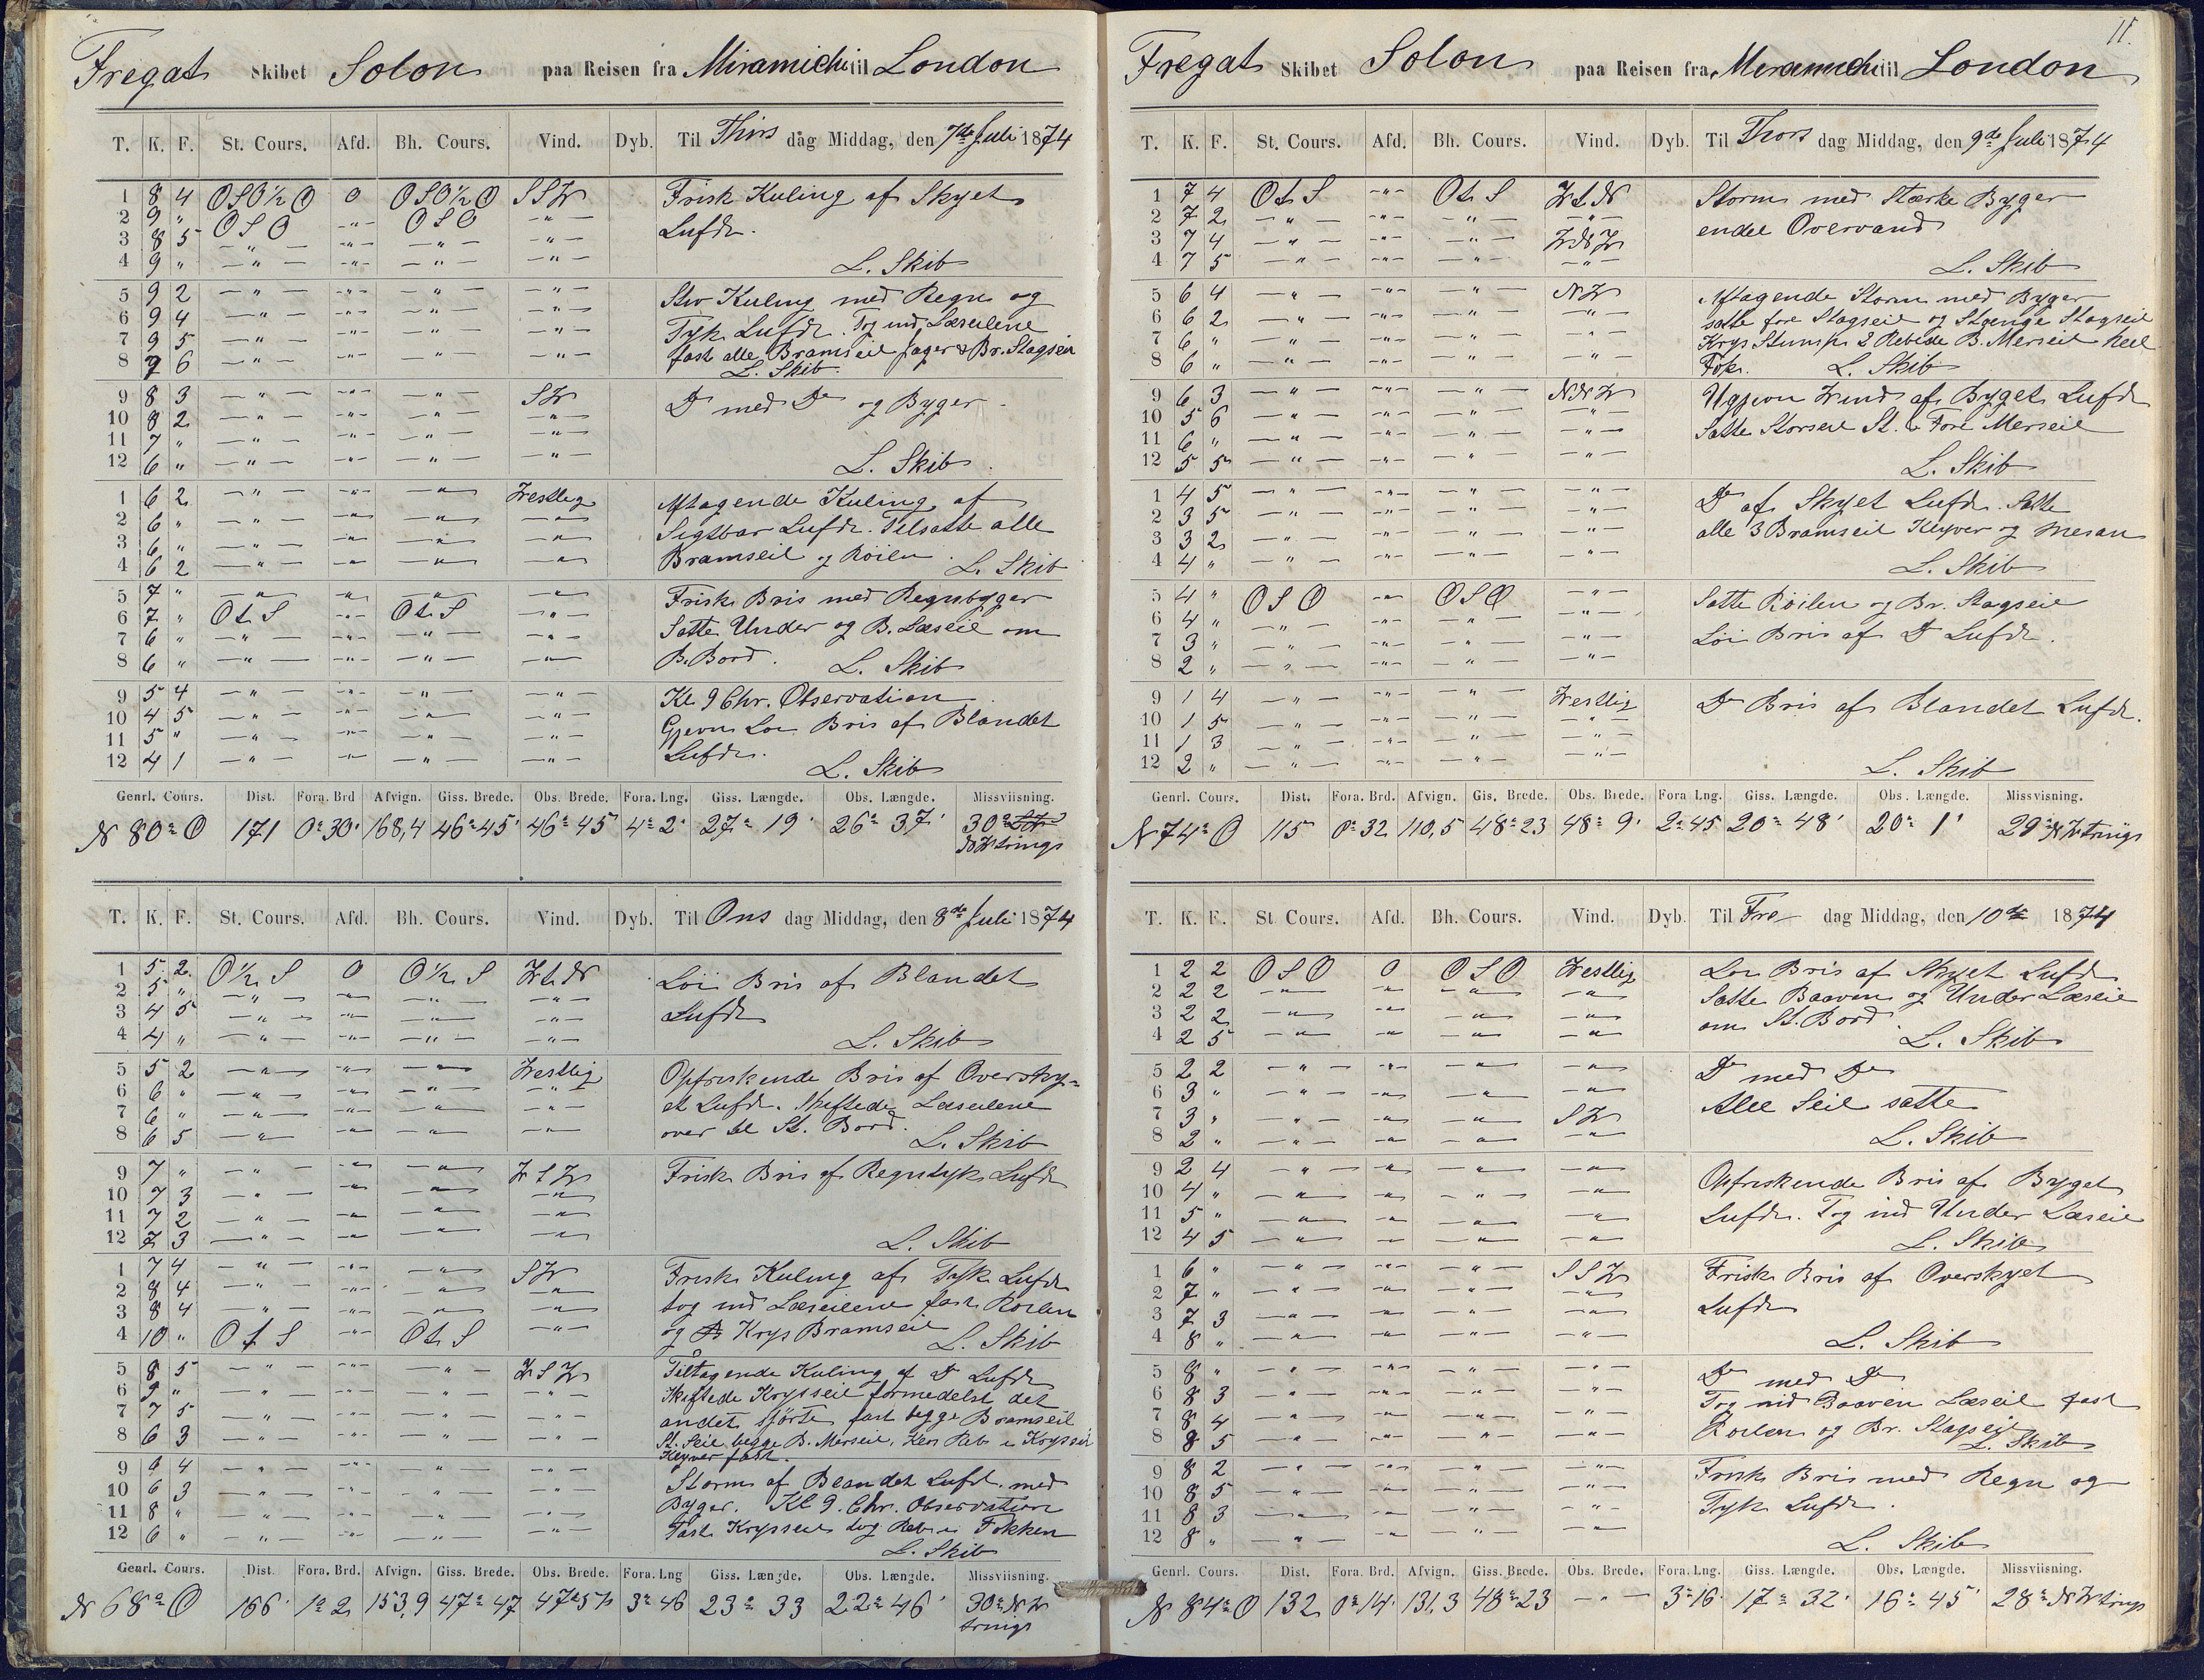 Fregat Skibet Solon paa Reisen fra Miramichi til London
T. K. F. St. Cours. Afd. Bh. Cours. Vind. Dyb. Til Thirs dag Middag, den 7de Juli 1874
1 8 4 OSO½O O OSO½O SSW Frisk Kuling af Skyet
2 9 " OSO -"- OSO -"- Luft.
3 8 5 -"- -"- -"- -"-
4 9 " -"- -"- -"- -"- L. Skib
5 9 2 -"- -"- -"- -"- Stiv Kuling med Regn og
6 9 4 -"- -"- -"- -"- Tyk Luft. Tog ind Læseilene
7 9 5 -"- -"- -"- -"- fast alle Bramseil Jager & Br. Stagseil
8 9 6 -"- -"- -"- -"- L. Skib
9 8 3 -"- -"- -"- SW Do med Do og Byger
10 8 2 -"- -"- -"- -"-
11 7 " -"- -"- -"- -"-
12 6 " -"- -"- -"- -"- L. Skib
1 6 2 -"- -"- -"- Westlig Aftagende Kuling af
2 6 " -"- -"- -"- -"- Sigtbar Luft. Tilsatte alle
3 6 " -"- -"- -"- -"- Bramseil og Röilen.
4 6 2 -"- -"- -"- -"- L. Skib
5 7 " -"- -"- -"- -"- Frisk Bris med Regnbyger
6 7 " OtS -"- OtS -"- Satte Under og B. Læseil om
7 6 " -"- -"- -"- -"- B. Bord.
8 6 " -"- -"- -"- -"- L. Skib
9 5 4 -"- -"- -"- -"- Kl. 9 Chr. Observation
10 4 5 -"- -"- -"- -"- Gjevn Löi Bris af Blandet
11 5 " -"- -"- -"- -"- Luft.
12 4 1 -"- -"- -"- -"- L. Skib
Genrl. Cours. Dist. Fora. Brd Afvign. Giss. Brede. Obs. Brede. Fora. Lng. Giss. Længde. Obs. Længde. Missviisning.
N 80° O 171 0° 30' 168,4 46° 45' 46° 45' 4° 2' 27° 19' 26° 37' 30° NWtrings
T. K. F. St. Cours. Afd. Bh. Cours. Vind. Dyb. Til Ons dag Middag, den 8de Juli 1874
1 5 2 O½S O O½S WtN Löi Bris af Blandet
2 5 " -"- -"- -"- -"- Luft
3 4 5 -"- -"- -"- -"-
4 4 " -"- -"- -"- -"- L. Skib
5 5 2 -"- -"- -"- Westlig Opfriskende Bris af Oversky=
6 6 " -"- -"- -"- -"- et Luft. Skiftede Læseilene
7 6 " -"- -"- -"- -"- over til St. Bord.
8 6 5 -"- -"- -"- -"- L. Skib
9 7 " -"- -"- -"- WSW Frisk Bris af Regntyk Luft
10 7 3 -"- -"- -"- -"-
11 7 2 -"- -"- -"- -"-
12 7 3 -"- -"- -"- -"- L. Skib
1 7 4 -"- -"- -"- SW Frisk Kuling af Tyk Luft
2 8 4 -"- -"- -"- -"- tog ind Læseilene fast Roilen
3 8 4 -"- -"- -"- -"- og Krys Bramseil
4 10 " OtS -"- OtS -"- L. Skib
5 8 5 -"- -"- -"- WSW Tiltagende Kuling af Do Luft
6 9 " -"- -"- -"- -"- Skiftede Krysseil formedelst det
7 7 5 -"- -"- -"- -"- andet spörte fast begge Bramseil
8 6 3 -"- -"- -"- -"- St. Seil begge B. Merseil, Reb i Krysseil
Klyver fast.
9 4 -"- -"- -"- -"- Storm af Blandet Luft med
10 6 3 -"- -"- -"- -"- Byger. Kl 9. Chr. Observation
11 8 " -"- -"- -"- -"- Fast Krysseil tog Reb i Fokken
12 6 " -"- -"- -"- -"- L. Skib
Genrl. Cours. Dist. Fora. Brd. Afvign. Giss. Brede. Obs. Brede. Fora. Lng Giss. Længde. Obs. Længde. Missviisning.
N 68° O 166' 1° 2 153,9 47° 47 47° 57 3° 46 23° 33 22° 46' 30° NWtrings
11.
Fregat Skibet Solon paa Reisen fra Miramichi til London
T. K. F. St. Cours. Afd. Bh. Cours. Vind. Dyb. Til Thors dag Middag, den 9de Juli 1874
1 7 4 OtS -"- OtS WtN Storm med Stærke Byger
2 7 2 -"- -"- -"- -"- endel Overvand
3 7 4 -"- -"- -"- WNW
4 7 5 -"- -"- -"- -"- L. Skib
5 6 4 -"- -"- -"- NW Aftagende Storm med Byger
6 6 2 -"- -"- -"- -"- satte fore Stagseil og Stænge Stagseil
7 6 " -"- -"- -"- -"- Krys Stump 2 Rebede B. Merseil heel
8 6 " -"- -"- -"- -"- Fok. L. Skib
9 6 3 -"- -"- -"- NNW Ugjevn Wind af Byget Luft
10 5 6 -"- -"- -"- -"- Satte Storseil St. & Fore Merseil
11 6 " -"- -"- -"- -"-
12 5 5 -"- -"- -"- -"- L. Skib
1 4 5 -"- -"- -"- -"- Do af Skyet Luft. Satte
2 3 5 -"- -"- -"- -"- alle 3 Bramseil Klyver og Mesan
3 3 2 -"- -"- -"- -"-
4 4 " -"- -"- -"- -"- L. Skib
5 4 " OSO -"- OSO -"- Satte Röilen og Br. Stagseil
6 4 " -"- -"- -"- -"- Löi Bris af Do Luft.
7 3 " -"- -"- -"- -"-
8 2 " -"- -"- -"- -"-
9 1 4 -"- -"- -"- Westlig Do Bris af Blandet Luft.
10 1 5 -"- -"- -"- -"-
11 1 3 -"- -"- -"- -"-
12 2 " -"- -"- -"- -"- L. Skib
Genrl. Cours. Dist. Fora. Brd. Afvign. Gis. Brede. Obs. Brede. Fora Lng. Giss. Længde. Obs. Længde. Missvisning.
N 74° O 115 0° 32 110,5 48° 23 48° 9' 2° 45 20° 48' 20° 1' 29° NWtrings
T. K. F. St Cours. Afd. Bh. Cours. Vind. Dyb. Til Fre dag Middag, den 10de 1874
1 2 2 OSO O OSO Westlig Löi Bris af Skyet Luft
2 2 2 -"- -"- -"- -"- Satte Baaven og Under Læseil
3 2 2 -"- -"- -"- -"- om St. Bord
4 2 5 -"- -"- -"- -"- L. Skib
5 2 2 -"- -"- -"- -"- Do med Do
6 3 " -"- -"- -"- -"- Alle Seil satte
7 3 " -"- -"- -"- SW
8 2 " -"- -"- -"- -"- L. Skib
9 2 4 -"- -"- -"- -"- Opfriskende Bris af Byget
10 4 " -"- -"- -"- -"- Luft. Tog ind Under Læseil
11 5 " -"- -"- -"- -"-
12 4 5 -"- -"- -"- -"- L. Skib
1 6 " -"- -"- -"- SSW Frisk Bris af Overskyet
2 7 " -"- -"- -"- -"- Luft
3 7 3 -"- -"- -"- -"-
4 8 " -"- -"- -"- -"- L. Skib
5 8 " -"- -"- -"- -"- Do med Do
6 8 3 -"- -"- -"- -"- Tog ind Baaven Læseil fast
7 8 4 -"- -"- -"- -"- Roilen og Br. Stagseil
8 8 5 -"- -"- -"- -"- L. Skib
9 8 2 -"- -"- -"- -"- Frisk Bris med Regn og
10 8 5 -"- -"- -"- -"- Tyk Luft.
11 8 3 -"- -"- -"- -"-
12 8 " -"- -"- -"- -"- L. Skib
Genrl. Cours. Dist. Fora. Brd. Afvign. Giss. Brede. Obs. Brede. Fora. Lng. Giss. Længde. Obs. Længde. Missvisning.
N 84° O 132 0° 14' 131,3 48° 23 -"- 3° 16' 17° 32' 16° 45' 28° NWtrings